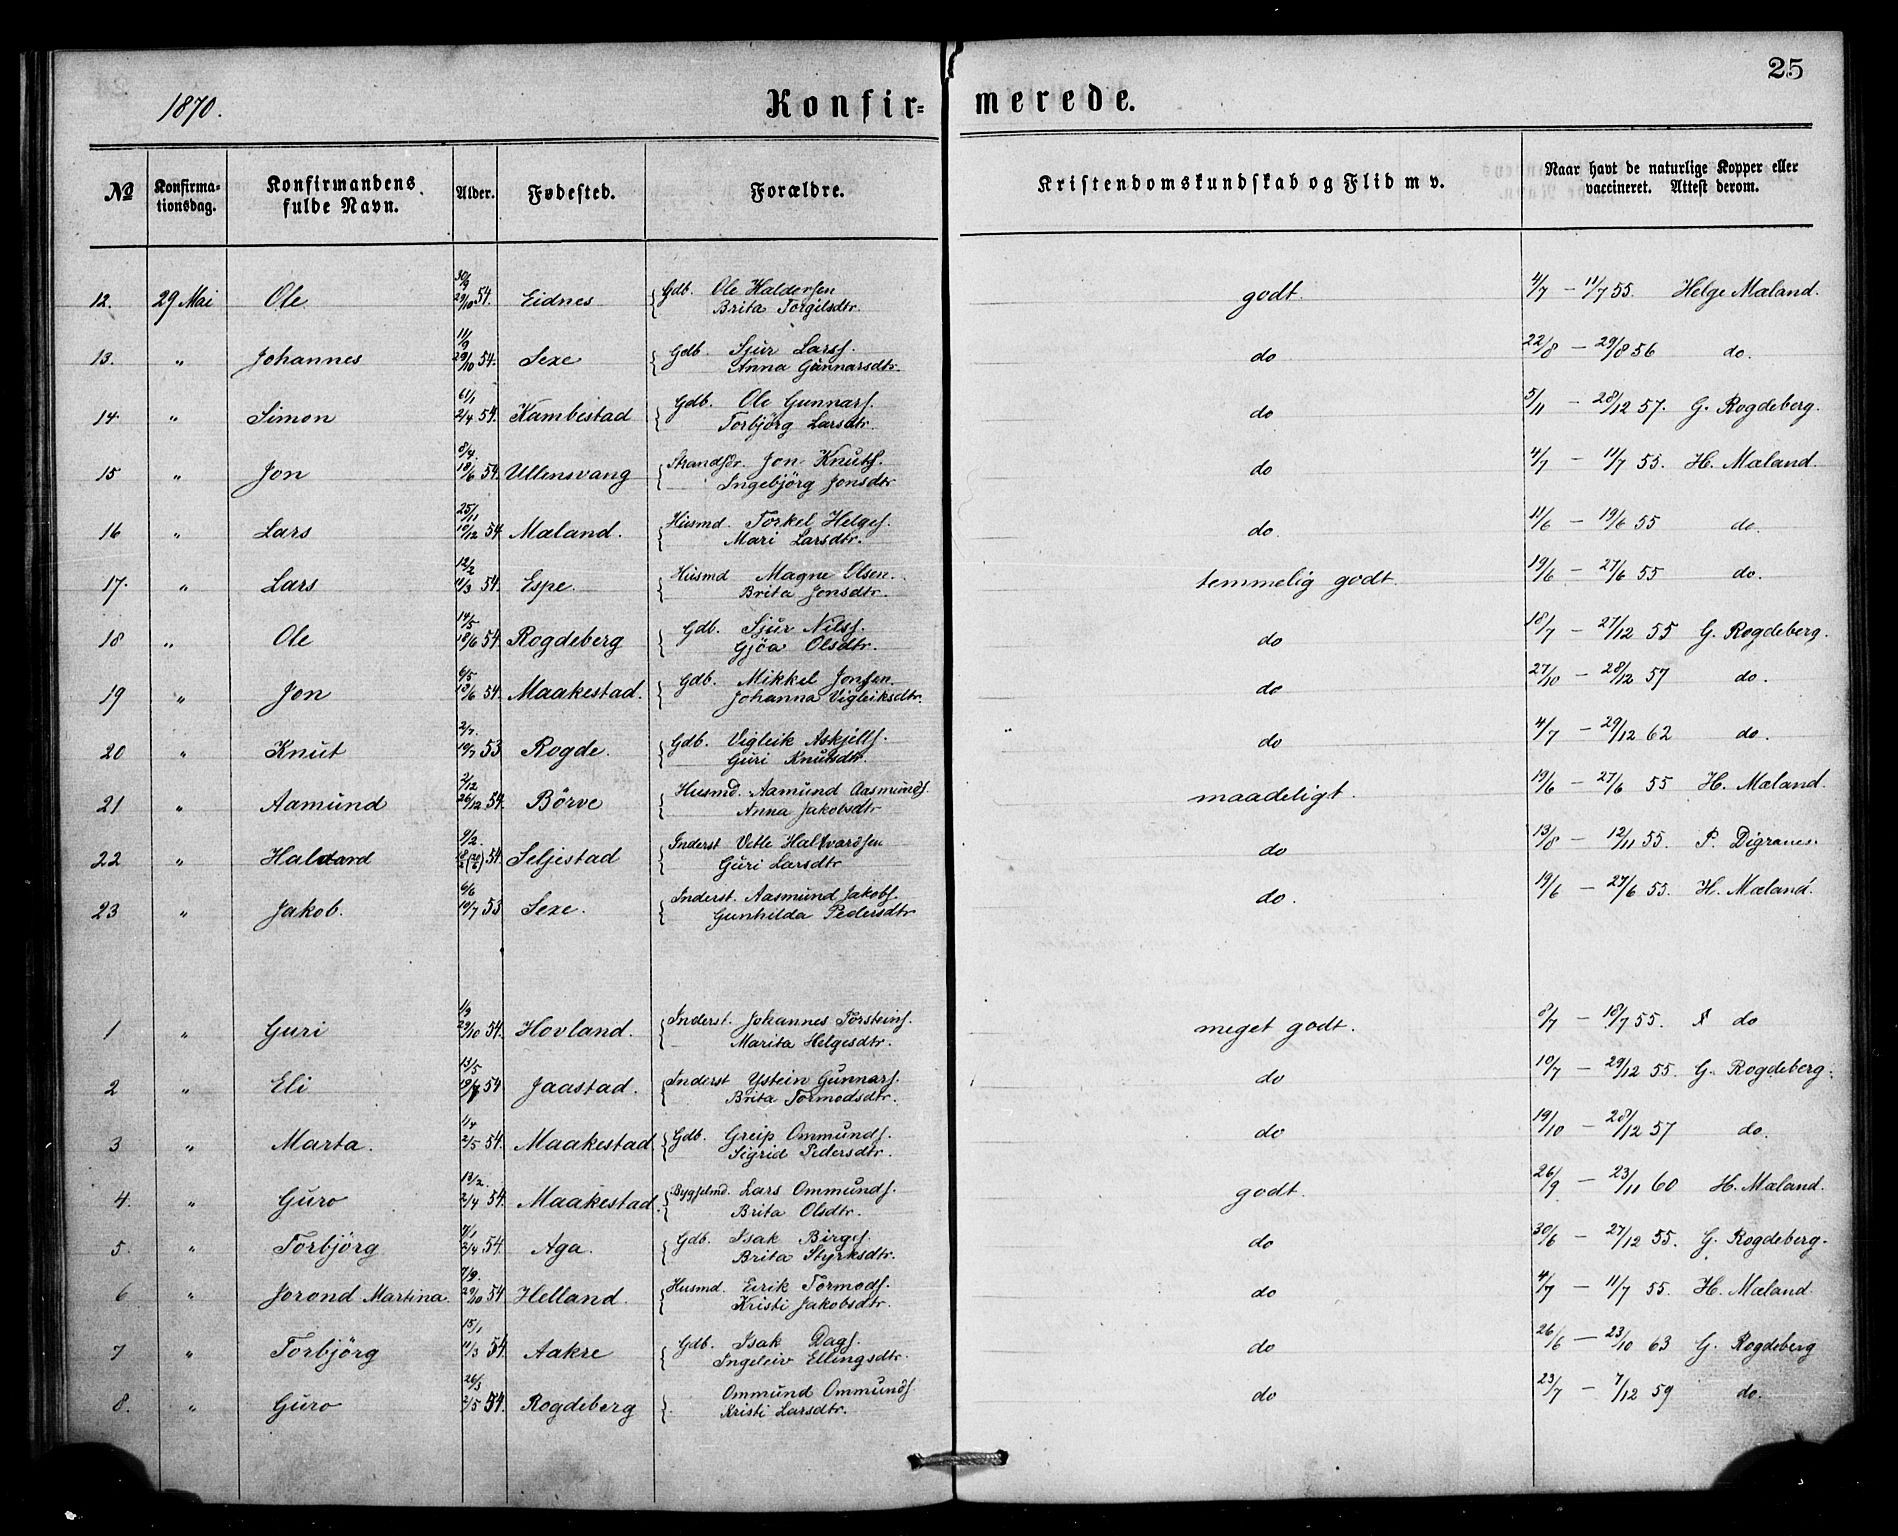 25
1870.
Konfir- merede.
No
Konfirma-
tionsdag.
Konfirmandens
fulde Navn.
Alder.
Fødested.
Forældre.
Kristendomskundskab og Flid m v.
Naar havt de naturlige Kopper eller
vaccineret. Attest derom.
12. 29 Mai Ole 30/9 29/10 54. Eidnes { Gdb. Ole Haldorsen godt. 4/7 — 11/7 55. Helge Mæland.
Brita Torgilsdtr.
13. „ Johannes 11/9 29/10 54. Sexe { Gdb. Sjur Larss. do 22/8 — 29/8 56 do.
Anna Gunnarsdtr.
14. „ Simon 2/4 54. Kambestad { Gdb. Ole Gunnars. do 5/11 — 28/12 57. G. Rogdeberg.
Torbjörg Larsdtr.
15 „ Jon 8/4. 18/6 54. Ullensvang { Strandsdr. Jon Knuts. do 4/7 — 11/7 55. H. Mæland.
Ingebjörg Jonsdtr
16 „ Lars 25/11 10/12 54 Mæland. { Husmd. Torkel Helges. do. 11/6 — 19/6 55 do.
Mari Larsdtr.
17. „ Lars 12/2 11/3 54. Espe. { Husmd Magne Olsen. temmelig godt. 19/6 — 27/6 55 do.
Brita Jonsdtr.
18 „ Ole 14/5 18/6 54. Rogdeberg { Gdb. Sjur Nilss. do 18/7 — 27/12 55 G. Rogdeberg.
Gjöa Olsdtr.
19 „ Jon 6/5 18/6 54. Maakestad. { Gdb. Mikkel Jonsen do 27/10 — 28/12 57 do.
Johanna Vigleiksdtr.
20 „ Knut 2/7. 10/7 53 Rogde. { Gdb. Vigleik Askjells. do 4/7 — 29/12 62 do.
Guri Knutsdtr.
21 „ Aamund 2/12 26/12 54. Börve { Husmd. Aamund Aasmunds. maadeligt. 19/6 — 27/6 55 H. Mæland.
Anna Jakobsdtr
22 „ Haldvard 9/2. 54. Seljestad { Inderst Vetle Halvardsen do 13/8 — 12/11 55. P. Digranes.
Guri Larsdtr
23 „ Jakob. 6/6 10/7 53 Sexe. { Inderst. Aasmund Jakobs. do. 19/6 — 27/6 55. H. Mæland.
Gunhilda Pedersdtr
1 „ Guri 1/9 29/10 54. Hovland. { Inderst. Johannes Torsteins. meget godt. 8/7 — 18/7 55. do
Marita Helgesdtr.
2 „ Eli 13/5 54 Jaastad. { Inderst Ystein Gunnars. do 10/7 — 29/12 55. G. Rogdeberg.
Brita Tormodsdtr.
3 „ Marta. 1/4 2/5 54. Maakestad { Gdb. Greip Ommunds. do 19/10 — 28/12 57 do.
Sigrid Pedersdtr.
4. „ Guro 13/2. 2/4 54. Maakestad. { Bygselmd. Lars Ommunds. godt. 26/9 — 23/11 60 H. Mæland.
Brita Olsdtr.
5. „ Torbjörg 2/4 54. Aga. { Gdb. Isak Birges. do 30/6 — 27/12 55. G. Rogdeberg.
Brita Styrksdtr.
6 „ Jorond Martina 7/9. 29/10 54 Helland. { Husmd. Eirik Tormods. do 4/7 — 11/7 55. H. Mæland.
Kristi Jakobsdtr.
7 „ Torbjörg 15/1 11/3 54. Aakre { Gdb. Isak Dags. do 26/6 — 23/10 63 G. Rogdeberg
Ingeleiv Ellingsdtr.
8. „ Guro 26/3 2/5 54. Rogdeberg { Ommund Ommunds do 23/7 — 7/12 59 do.
Kristi Larsdtr.